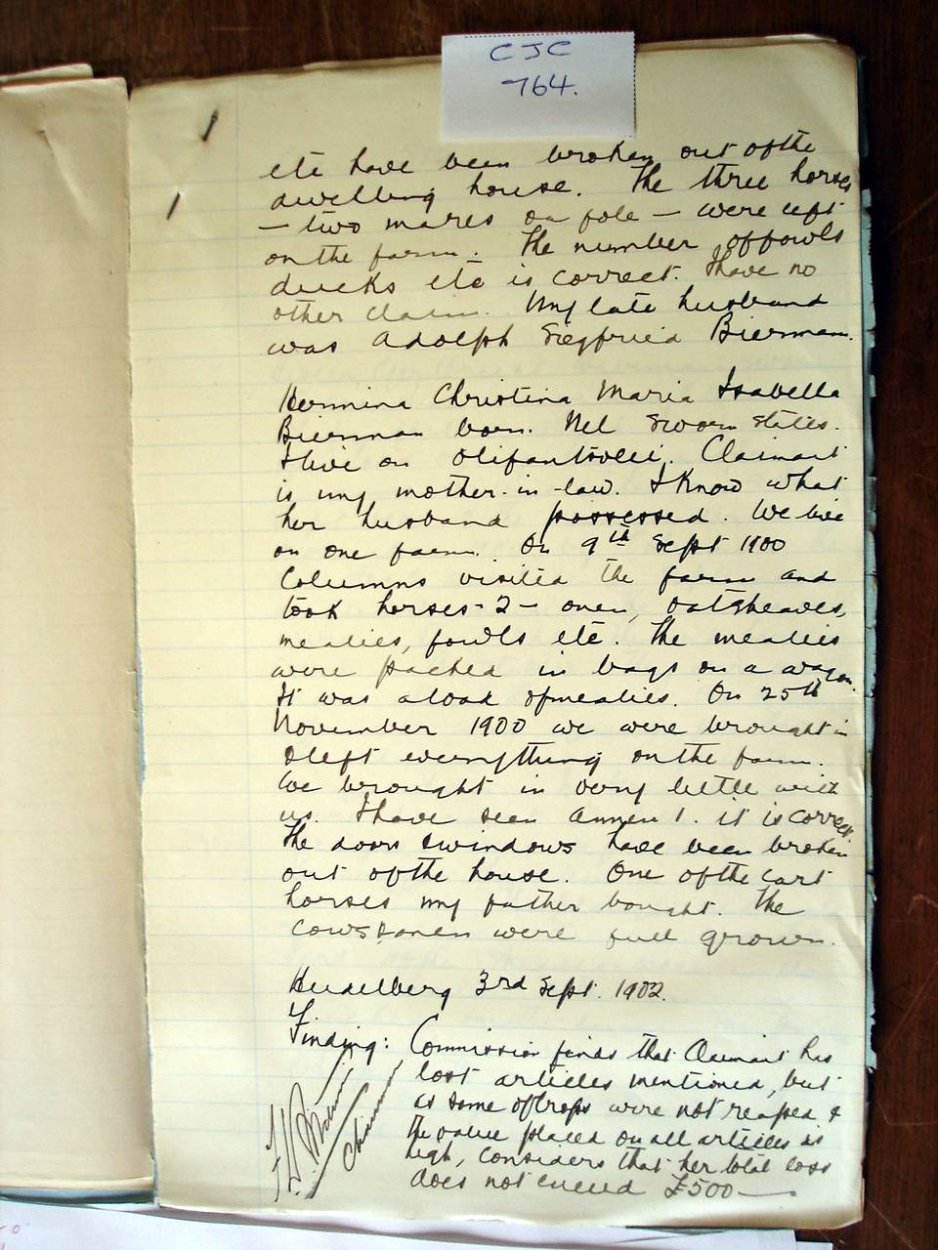 CJC
764.
etc have been broken out of the
dwelling house. The three horses
— two mares on fole — were left
on the farm. The number of fowls
ducks etc is correct. I have no
other claim. My late husband
was Adolph Siegfried Bierman.
Hermina Christina Maria Isabella
Bierman born Nel Sworn states.
I live on Olifantsvlei. Claimant
is my mother-in-law. I know what
her husband possessed. We live
on one farm. On 9th Sept 1900
Columns visited the farm and
took horses - 2 - oxen, oatsheaves,
mealies, fowls etc. The mealies
were packed in bags on a wagon.
It was a load of mealies. On 25th
November 1900 we were brought in
& left everything on the farm.
We brought in very little with
us. I have seen Annex 1. it is correct.
The doors & windows have been broken
out of the house. One of the cart
horses my father bought. The
cows & oxen were full grown.
Heidelberg 3rd Sept. 1902.
Finding: Commission finds that Claimant has
lost articles mentioned, but
as some of crops were not reaped &
the value placed on all articles is
high, considers that her total loss
does not exceed £500 —
Chairman